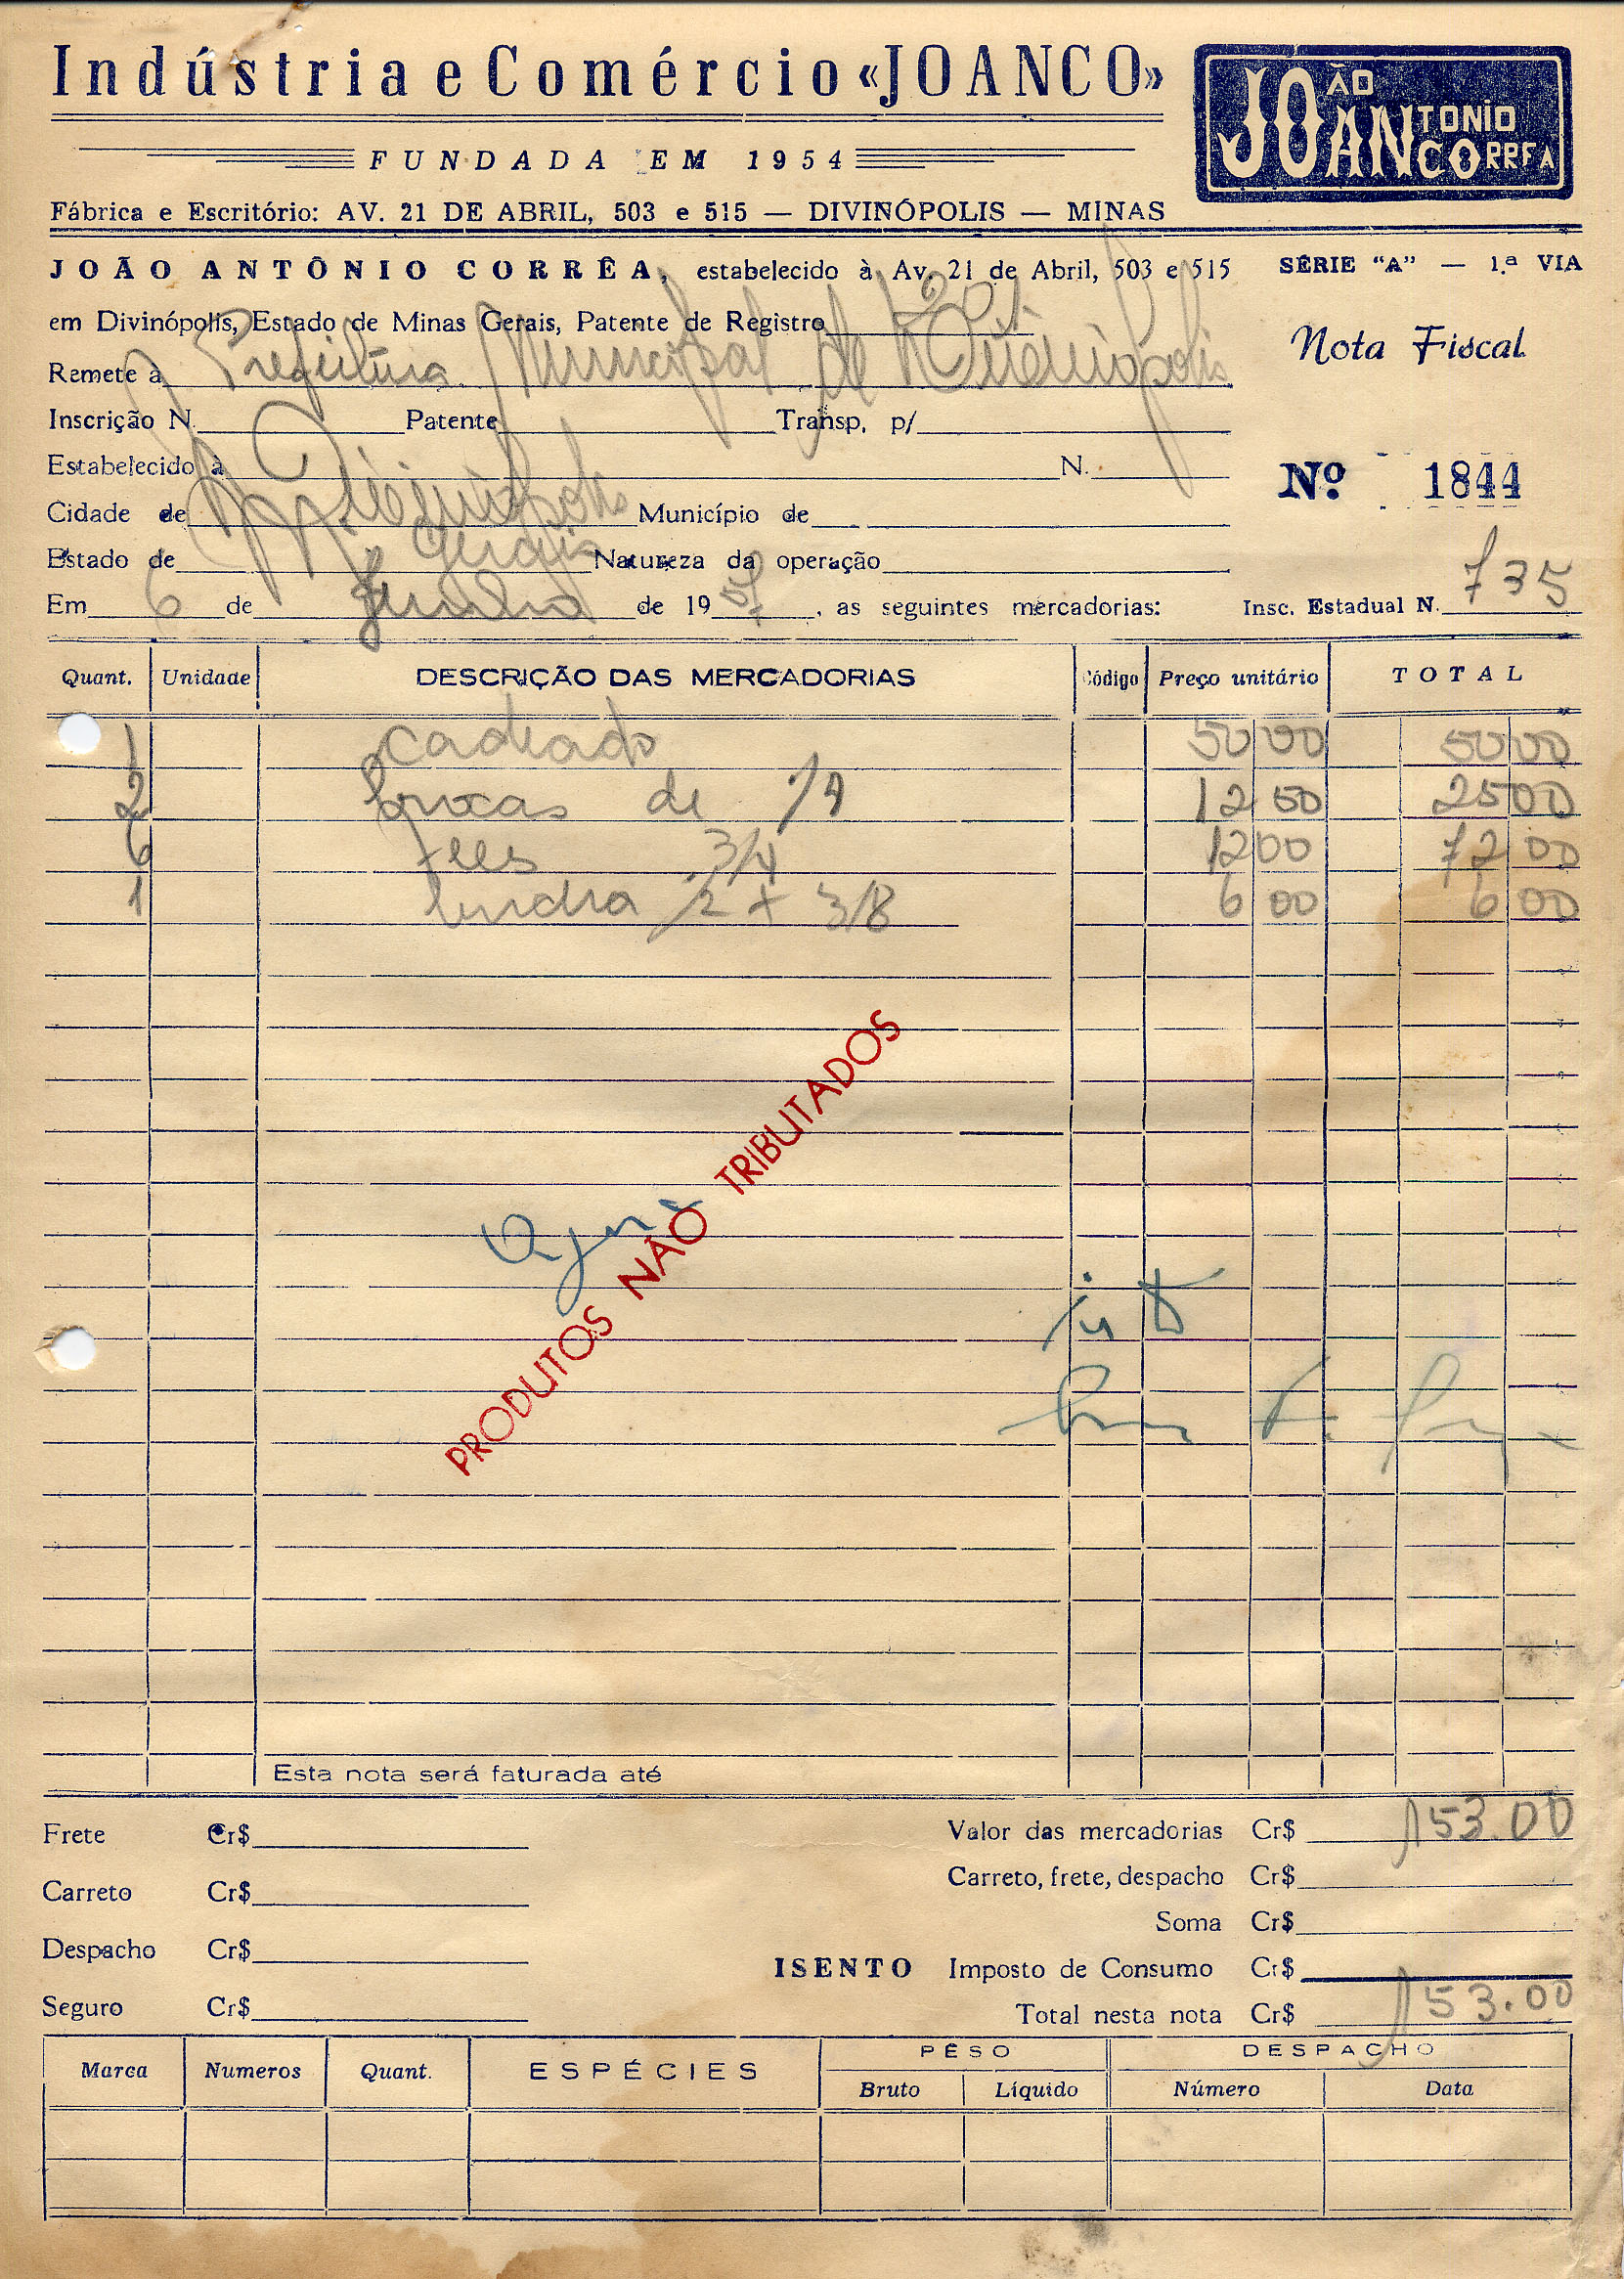 Indústria e Comércio «JOANCO»
JOÃO ANTONIO CORREA
FUNDADA EM 1954
Fábrica e Escritório: AV. 21 DE ABRIL, 503 e 515 — DIVINÓPOLIS — MINAS
JOÃO ANTÔNIO CORRÊA, estabelecido à Av. 21 de Abril, 503 e 515
SÉRIE "A" — 1.ª VIA
em Divinópolis, Estado de Minas Gerais, Patente de Registro 1201
Nota Fiscal
Remete à Prefeitura Municipal de Divinópolis
Inscrição N. Patente Transp. p/
Estabelecido à N.
Nº 1844
Cidade de Divinópolis Município de
Estado de M. Gerais Natureza da operação
Em 6 de Junho de 19 57, as seguintes mercadorias: Insc. Estadual N. 735
Quant. Unidade DESCRIÇÃO DAS MERCADORIAS Código Preço unitário TOTAL
1 cadeado 50 00 50 00
2 brocas de 1/4 12 50 25 00
6 tees 3/4 12 00 72 00
1 bucha 1/2 x 3/8 6 00 6 00
PRODUTOS NÃO TRIBUTADOS
Esta nota será faturada até
Frete Cr$ Valor das mercadorias Cr$ 153.00
Carreto Cr$ Carreto, frete, despacho Cr$
Soma Cr$
Despacho Cr$ ISENTO Imposto de Consumo Cr$
Seguro Cr$ Total nesta nota Cr$ 153.00
Marca Numeros Quant. ESPÉCIES PÊSO DESPACHO
Bruto Líquido Número Data